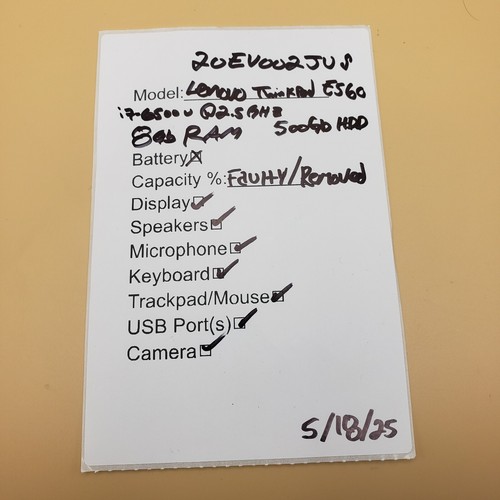 20EV002JUS
Model: Lenovo ThinkPad E560
i7-6500U @2.5GHz
8Gb RAM 500Gb HDD
Battery☒
Capacity %: Faulty/Removed
Display☑
Speakers☑
Microphone☑
Keyboard☑
Trackpad/Mouse☑
USB Port(s)☑
Camera☑
5/18/25